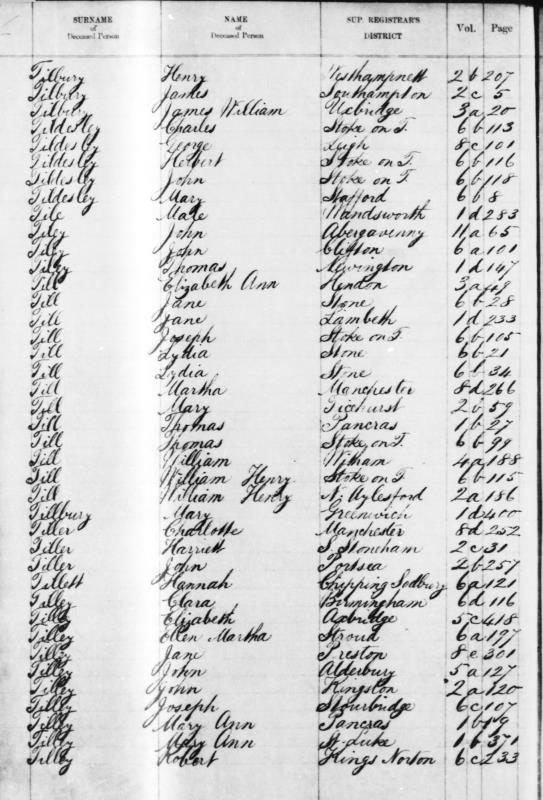 SURNAME NAME SUP. REGISTRAR'S Vol. Page
of Deceased Person of Deceased Person DISTRICT
Tilbury Henry Westhampnett 2 b 207
Tilbury James Southampton 2 c 5
Tilbury James William Uxbridge 3 a 20
Tildesley Charles Stoke on T. 6 b 113
Tildesley George Leigh 8 c 101
Tildesley Herbert Stoke on T. 6 b 116
Tildesley John Stoke on T. 6 b 118
Tildesley Mary Stafford 6 b 8
Tile Male Wandsworth 1 d 283
Tiley John Abergavenny 11 a 65
Tiley John Clifton 6 a 101
Tiley Thomas Newington 1 d 147
Till Elizabeth Ann Hendon 3 a 49
Till Jane Stone 6 b 28
Till Jane Lambeth 1 d 233
Till Joseph Stoke on T. 6 b 105
Till Lydia Stone 6 b 21
Till Lydia Stone 6 b 34
Till Martha Manchester 8 d 266
Till Mary Ticehurst 2 b 59
Till Thomas Pancras 1 b 27
Till Thomas Stoke on T. 6 b 99
Till William Witham 4 a 188
Till William Henry Stoke on T 6 b 115
Till William Henry N. Aylesford 2 a 186
Tillbury Mary Greenwich 1 d 400
Tiller Charlotte Manchester 8 d 252
Tiller Harriett S. Stoneham 2 c 31
Tiller John Portsea 2 b 257
Tillett Hannah Chipping Sodbury 6 a 121
Tilley Clara Birmingham 6 d 116
Tilley Elizabeth Axbridge 5 c 418
Tilley Ellen Martha Stroud 6 a 197
Tilley Jane Preston 8 e 301
Tilley John Alderbury 5 a 127
Tilley John Kingston 2 a 120
Tilley Joseph Stourbridge 6 c 107
Tilley Mary Ann Pancras 1 b
Tilley Mary Ann St. Luke 1 b 371
Tilley Robert Kings Norton 6 c 233